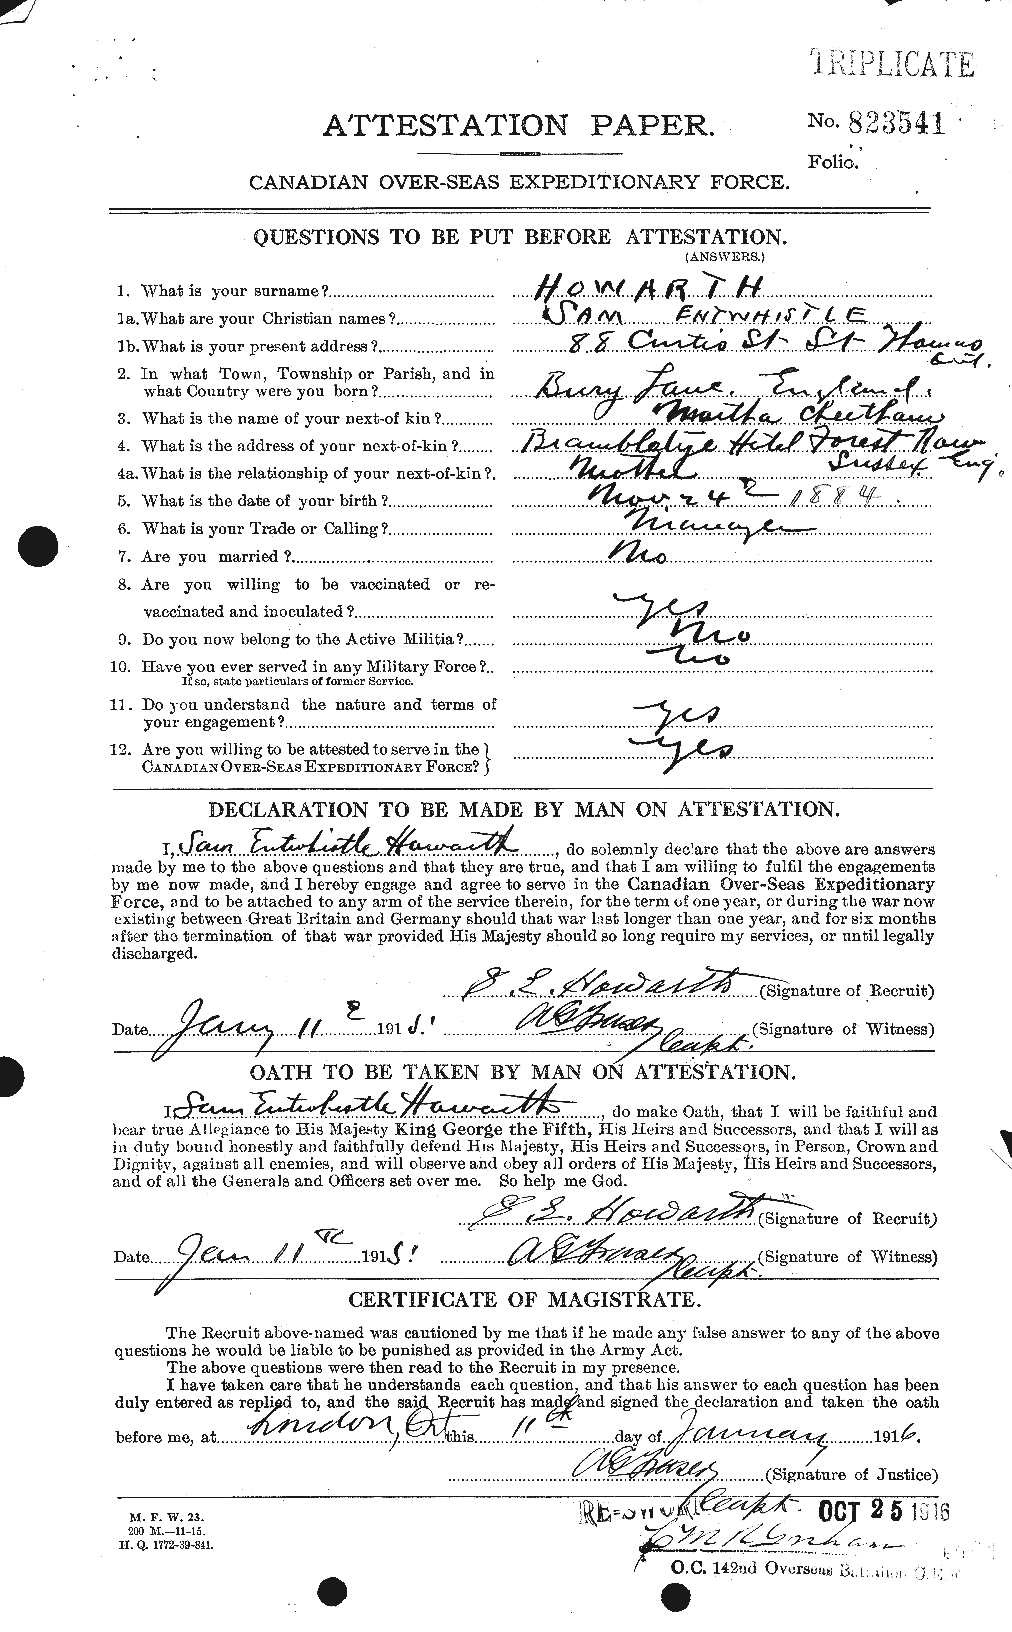 TRIPLICATE
ATTESTATION PAPER.
No. 823541
Folio.
CANADIAN OVER-SEAS EXPEDITIONARY FORCE.
QUESTIONS TO BE PUT BEFORE ATTESTATION.
(ANSWERS.)
1. What is your surname? HOWARTH
1a. What are your Christian names? SAM ENTWHISTLE
1b. What is your present address? 88 Curtis St St Thomas Ont.
2. In what Town, Township or Parish, and in
what Country were you born? Bury Lanc. England.
3. What is the name of your next-of kin? Martha Cheetham
4. What is the address of your next-of-kin? Brambletye Hotel Forest Row Sussex Eng.
4a. What is the relationship of your next-of-kin? Mother
5. What is the date of your birth? Nov 24 1884.
6. What is your Trade or Calling? Manager
7. Are you married? No
8. Are you willing to be vaccinated or re-
vaccinated and inoculated? yes
9. Do you now belong to the Active Militia? No
10. Have you ever served in any Military Force? No
If so, state particulars of former Service.
11. Do you understand the nature and terms of
your engagement? yes
12. Are you willing to be attested to serve in the
CANADIAN OVER-SEAS EXPEDITIONARY FORCE? } yes
DECLARATION TO BE MADE BY MAN ON ATTESTATION.
I, Sam Entwhistle Howarth, do solemnly declare that the above are answers
made by me to the above questions and that they are true, and that I am willing to fulfil the engagements
by me now made, and I hereby engage and agree to serve in the Canadian Over-Seas Expeditionary
Force, and to be attached to any arm of the service therein, for the term of one year, or during the war now
existing between Great Britain and Germany should that war last longer than one year, and for six months
after the termination of that war provided His Majesty should so long require my services, or until legally
discharged.
S. E. Howarth (Signature of Recruit)
Date Jany 11 1915! A G Fraser Capt. (Signature of Witness)
OATH TO BE TAKEN BY MAN ON ATTESTATION.
I Sam Entwhistle Howarth, do make Oath, that I will be faithful and
bear true Allegiance to His Majesty King George the Fifth, His Heirs and Successors, and that I will as
in duty bound honestly and faithfully defend His Majesty, His Heirs and Successors, in Person, Crown and
Dignity, against all enemies, and will observe and obey all orders of His Majesty, His Heirs and Successors,
and of all the Generals and Officers set over me. So help me God.
S E. Howarth (Signature of Recruit)
Date Jan 11th 1915! A G Fraser Capt. (Signature of Witness)
CERTIFICATE OF MAGISTRATE.
The Recruit above-named was cautioned by me that if he made any false answer to any of the above
questions he would be liable to be punished as provided in the Army Act.
The above questions were then read to the Recruit in my presence.
I have taken care that he understands each question, and that his answer to each question has been
duly entered as replied to, and the said Recruit has made and signed the declaration and taken the oath
before me, at London, Ont this 11th day of January 1916.
A G Fraser Capt. (Signature of Justice)
M. F. W. 23.
200 M.—11-15.
H. Q. 1772-39-841.
OCT 25 1916
O.C. 142nd Overseas Battalion